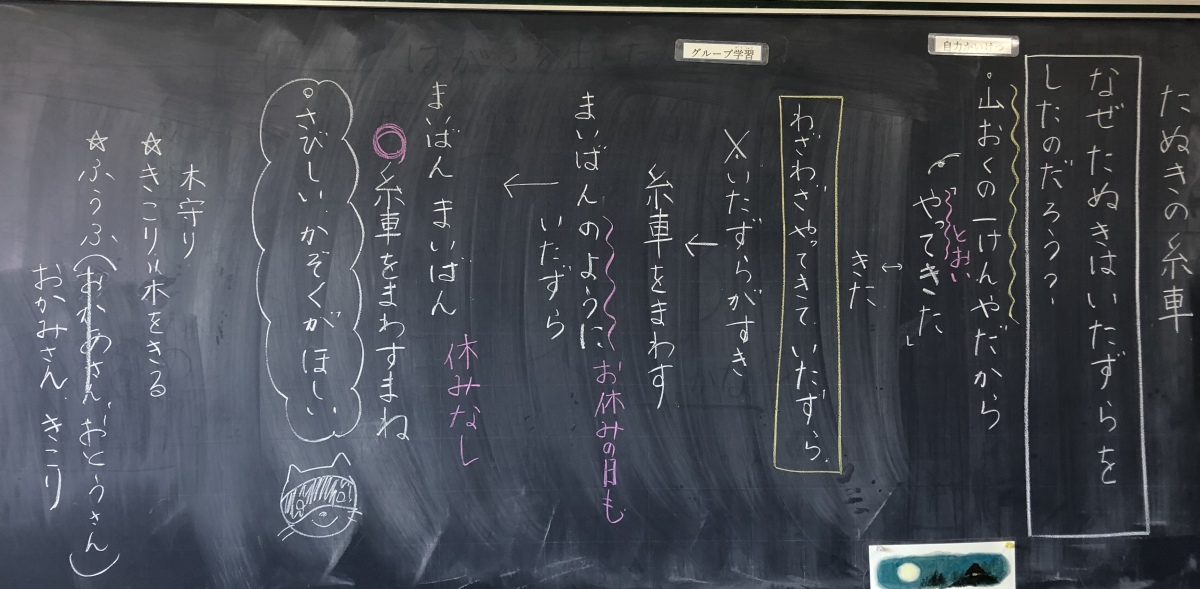 たぬきの糸車
なぜたぬきはいたずらを
したのだろう?
・山おくの一けんやだから
「やってきた」
とおい
↔
きた
わざわざやってきて、いたずら。
×いたずらがすき
糸車をまわす
←
まいばんのように
お休みの日も
いたずら
←
まいばん まいばん
休みなし
糸車をまわすまね
・さびしい、かぞくがほしい
木守り
☆きこり 木をきる
☆ふうふ(おかあさん、おとうさん)
おかみさん、きこり
グループ学習
自力かいけつ